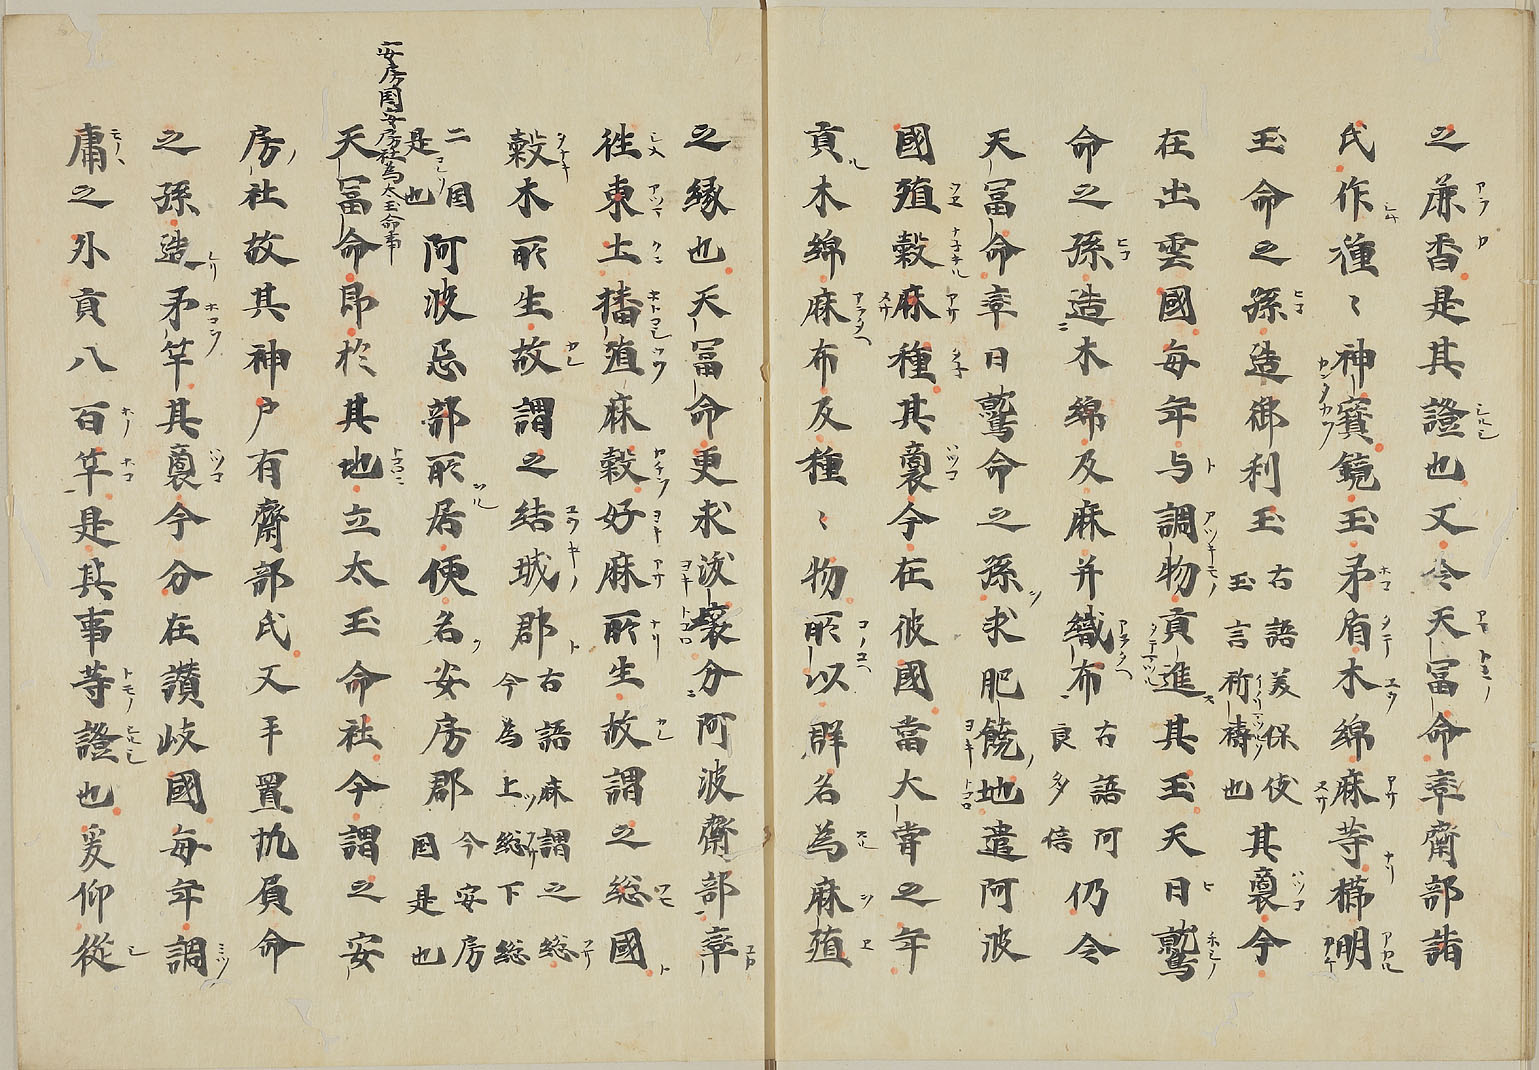 之麁香是其證也又令天冨命率齋部諸
氏作種〻神寶鏡玉矛盾木綿麻等櫛明
玉命之孫造御利玉古語美保伎玉言祈禱也其裔今
在出雲國毎年与調物貢進其玉天日鷲
命之孫造木綿及麻并織布古語阿良多倍仍令
天冨命率日鷲命之孫求肥饒地遣阿波
國殖穀麻種其裔今在彼國當大甞之年
貢木綿麻布及種〻物所以郡名為麻殖
之縁也天冨命更求沃壤分阿波齋部率
徃東土播殖麻穀好麻所生故謂之総國
穀木所生故謂之結城郡古語麻謂之総今為上総下総
二国是也阿波忌部所居便名安房郡今安房国是也
安房国安房社為太玉命事
天冨命即於其地立太玉命社今謂之安
房社故其神戸有齋部氏又手置帆負命
之孫造矛竿其裔今分在讃岐國毎年調
庸之外貢八百竿是其事等證也爰仰從